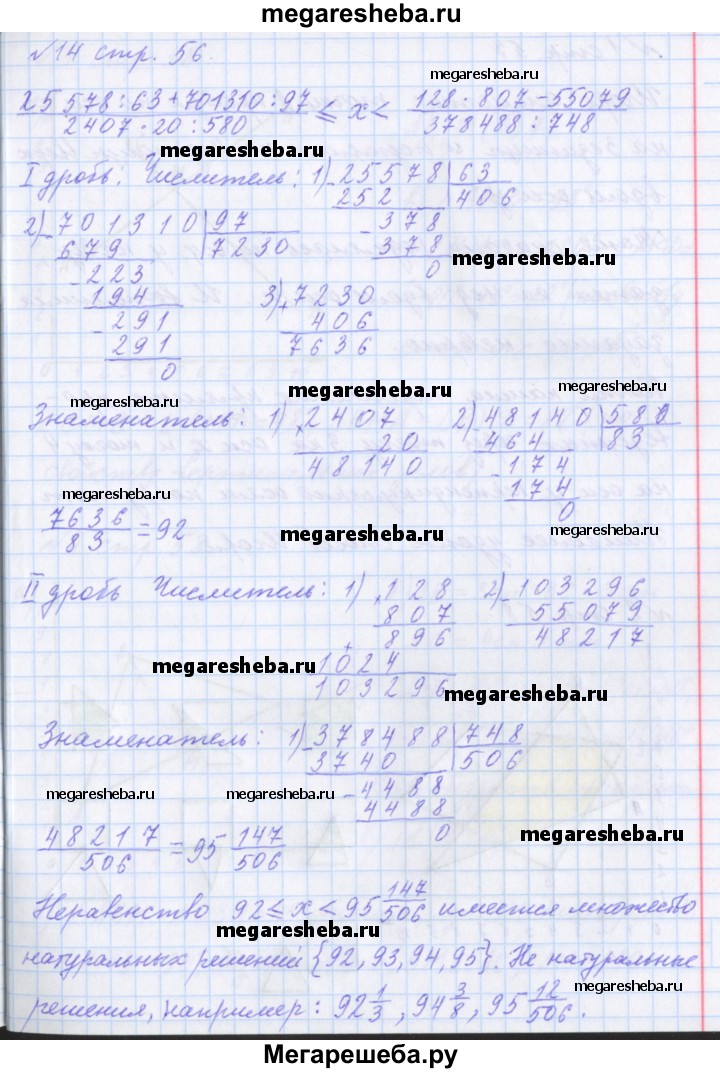 megaresheba.ru
№14 стр. 56.
megaresheba.ru
25578:63+701310:97 / 2407·20:580 ≤ x < 128·807-55079 / 378488:748
megaresheba.ru
I дробь: Числитель: 1) 25578 | 63
252 406
378
378
0
2) 701310 | 97
679 7230
223
194
291
291
0
megaresheba.ru
3) 7230
+ 406
7636
megaresheba.ru
megaresheba.ru
Знаменатель: 1) 2407
20
48140
2) 48140 | 580
464 83
174
174
0
megaresheba.ru
7636/83 = 92
megaresheba.ru
II дробь Числитель: 1) 128
807
896
+
1024
103296
2) 103296
55079
48217
megaresheba.ru
megaresheba.ru
Знаменатель: 1) 378488 | 748
3740 506
4488
4488
0
megaresheba.ru megaresheba.ru
megaresheba.ru
48217/506 = 95 147/506
Неравенство 92 ≤ x < 95 147/506 имеется множество
megaresheba.ru
натуральных решений {92, 93, 94, 95}. Не натуральные
решения, например: 92 1/3, 94 3/8, 95 12/506.
megaresheba.ru
Мегарешеба.ру